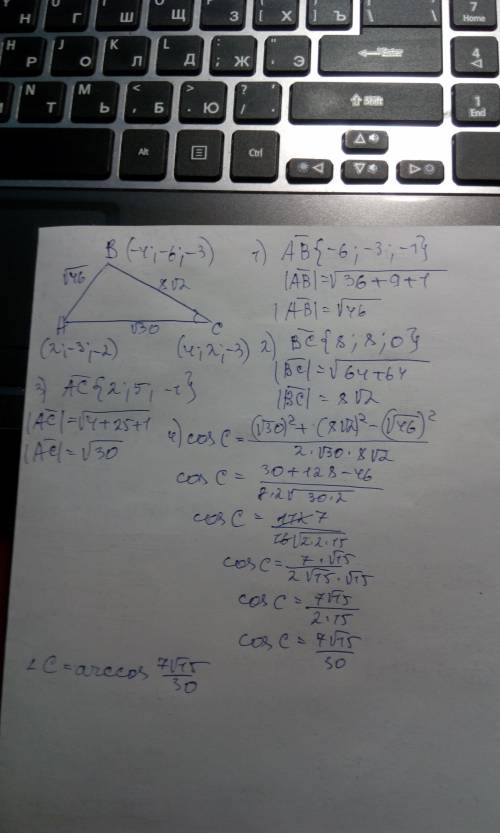 7
Home
4
1
End
Shift
Alt
Ctrl
B (-4; -6; -3)
√46
8√2
A
√30
C
(2; -3; -2)
(4; 2; -3)
1) AB{-6; -3; -1}
|AB|=√36+9+1
|AB|=√46
2) BC{8; 8; 0}
|BC|=√64+64
|BC|=8√2
3) AC{2; 5; -1}
|AC|=√4+25+1
|AC|=√30
4) cos C = (√30)²+(8√2)²-(√46)² / 2·√30·8√2
cos C = 30+128-46 / 8·2√30·2
cos C = 112 7 / 16√2·2·15
cos C = 7·√15 / 2√15·√15
cos C = 7√15 / 2·15
cos C = 7√15 / 30
∠C = arccos 7√15 / 30